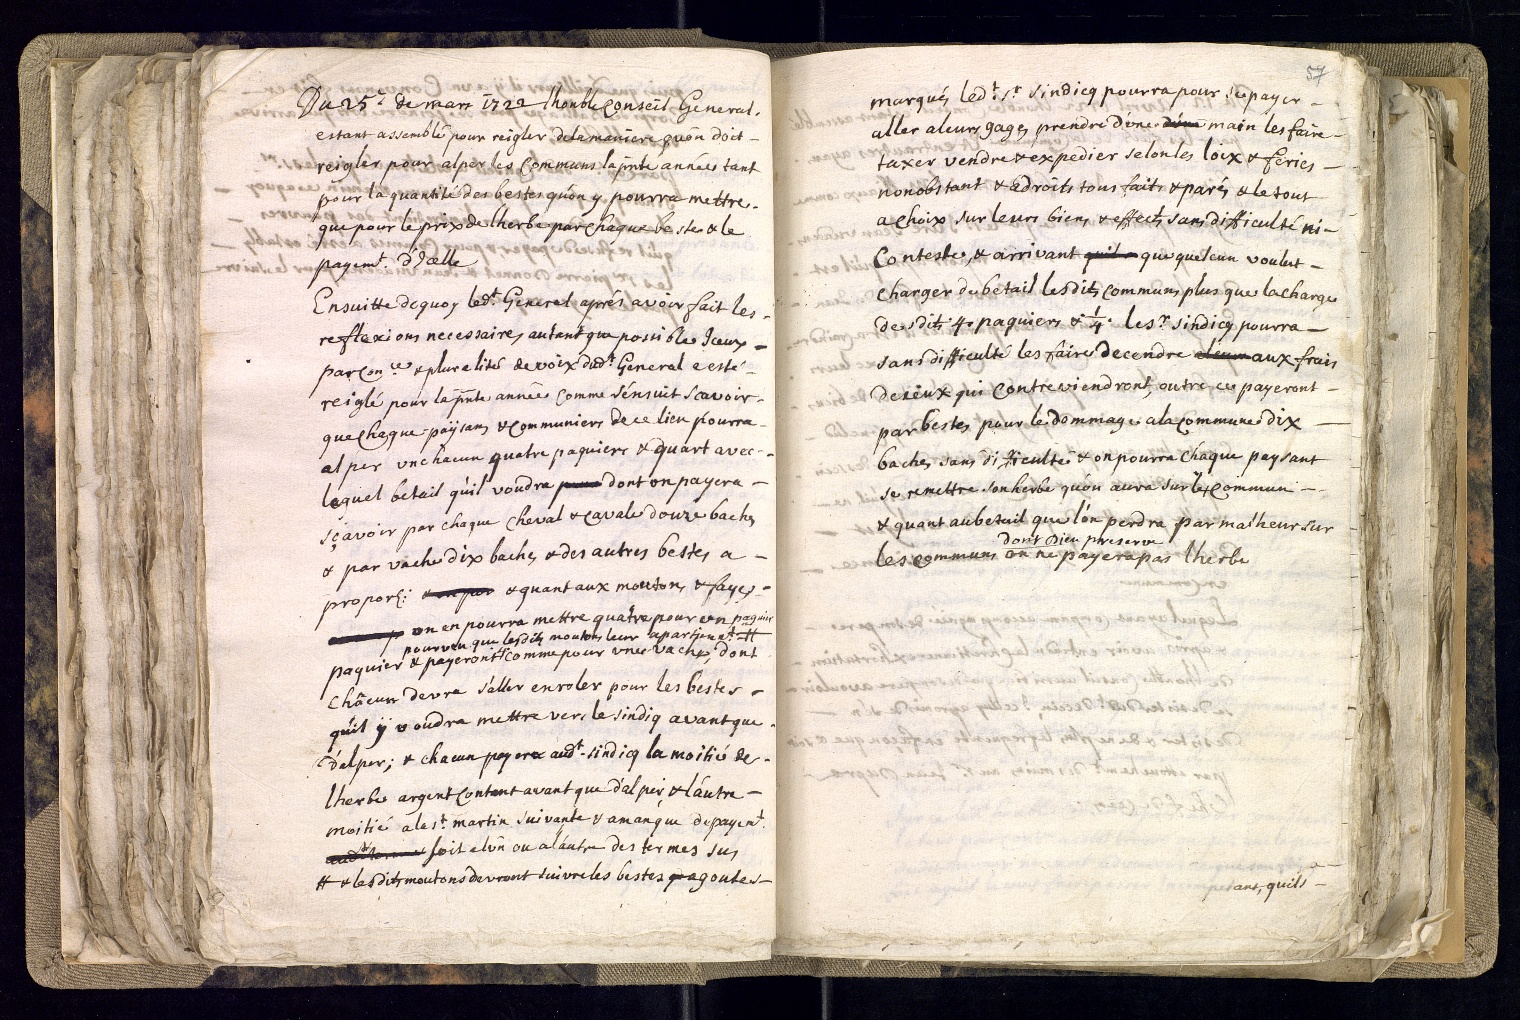 Du 25.e de mars 1722 lhonble Conseil General.
estant assemblé pour reigler delamaniere quón doit -
reigler pour alper les Communs la pnte années tant
pour la quantité des bestes quón y pourra mettre.
que pour le prix de lherbe par Chaque bestes & le
payemt. d'Jcelle
Ensuitte dequoy ledt. General aprés avoir fait les -
reflexions necessaires autant que possible Jceux -
par Con.ce & pluralité de voix dudt. General a esté -
reiglé pour la pnte année Comme sénsuit Scavoir -
que Chaque paÿsans & Communiers de ce lieu pourra -
alper un chacun quatre paquiers & quart avec -
laquel betail qu'il voudra dont on payera -
sçavoir par chaque Cheval & Cavale douze baches
& par vache dix baches & des autres bestes a -
proporç: & quant aux moutons & fayes -
on en pourra mettre quatre pour un paquier
pourveu que lesdits moutons leur apartienent #
paquier & payeront # comme pour une vache, dont
châcun devra s'aller enroler pour les bestes -
qu'il ÿ voudra mettre vers le sindiq avant que -
d'alper; & chacun payera audt. sindicq la moitié de -
lherbe argent Content avant que d'alper, & láutre -
moitié a la st. martin suivante & a manque de payemt.
soit elún ou a láutre des termes sus
# & lesdits moutons devront suivre les bestes agoutes -
57
marqués ledt. sr. sindicq pourra pour se payer -
aller aleurs gages prendre d'vne main les faire -
taxer vendre & expedier selon les loix & feries -
nonobstant & adroits tous faits & parés & le tout
a Choix sur leurs biens & effects sans difficulté ni -
Conteste, & arrivant que quelcun voulut -
Charger du betail lesdits Communs plus que la Charge
desdits .4. paquiers & 1/4. le sr. sindicq pourra -
sans difficulté les faire decendre aux frais
de ceux qui Contreviendront, outre ce payeront -
par bestes pour le dommage a la Commune dix -
baches sans difficulté & on pourra Chaque paysant
se remettre son herbe quón aura sur le Commun -
& quant au betail que l'ón perdra par malheur sur
dont Dieu preserve
les communs on ne payera pas lherbe
ans, quils -